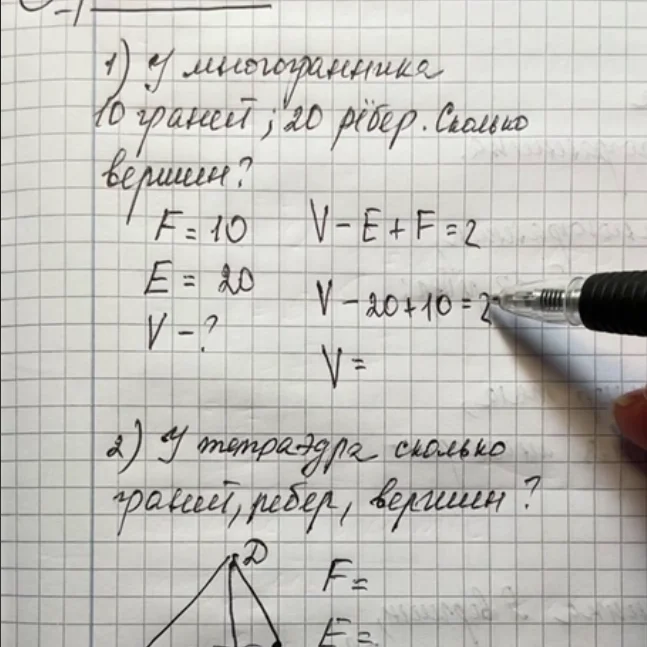 1) У многогранника
10 граней; 20 рёбер. Сколько
вершин?
F = 10
E = 20
V - ?
V - E + F = 2
V - 20 + 10 = 2
V =
2) У тетраэдра сколько
граней, ребер, вершин?
D
F =
E =